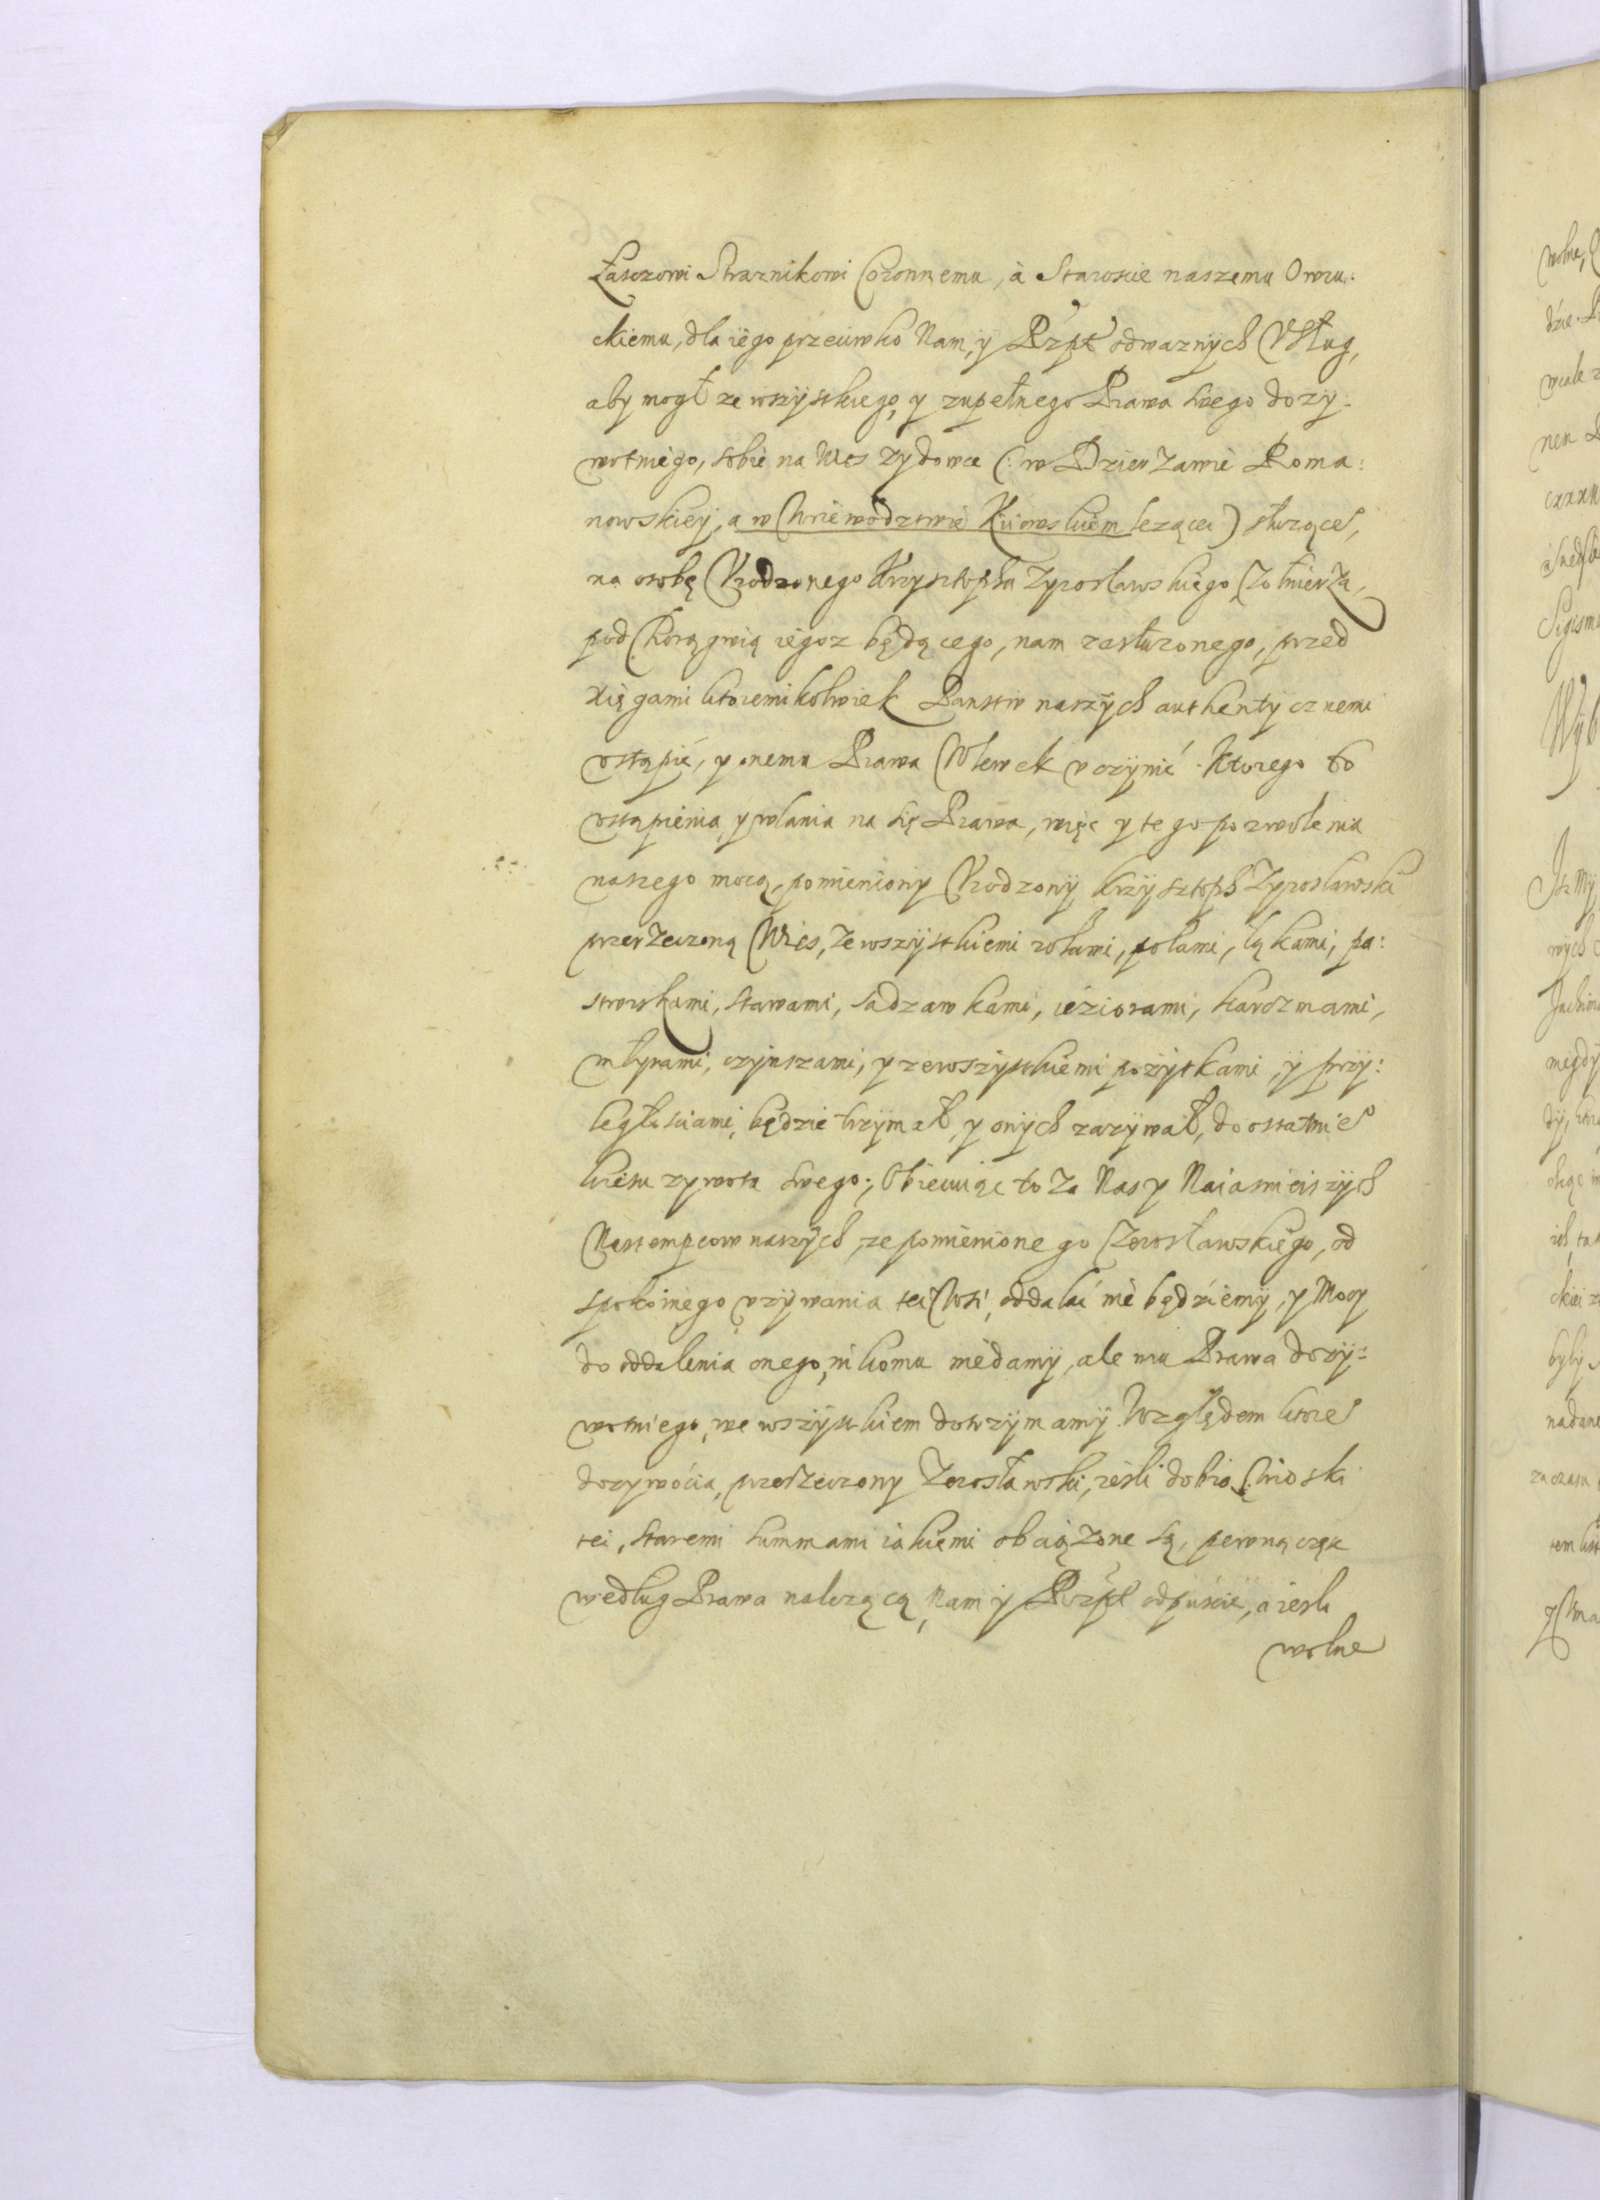 Łaszowi Straznikowi Coronnemu, à Staroscie naszemu Owru:
ckiemu, dla iego przeciwko Nam, y Rzpt odwaznych Vsług,
aby mogł ze wszystkiego, y zupełnego Prawa swego dozy:
wotniego, sobie na Wies Zydowce (: w Dzierzawie Roma:
nowskiey, a w Woiewodztwie Kiiowskiem lezącei) słuzące,
na osobę Vrodzonego Krzysztopha Zyrosławskiego Zołnierza,
pod Chorągwią iegoz będącego, nam zasłuzonego, przed
xięgami ktoremikolwiek Panstw naszych authentycznemi
vstąpić, y onemu Prawa Wlewek vczynić. Ktorego to
vstąpienia, y wlania na się Prawa, więc y tego pozwolenia
naszego mocą, pomieniony Vrodzony Krzysztoph Zyroslawski
przerzeczoną Wies, ze wszystkiemi rolami, polami, łąkami, pa:
stwiskami, stawami, sadzawkami, ieziorami, karczmami,
młynami, czynszami, y ze wszystkiemi pozytkami, y przy:
ległosciami, będzie trzymał, y onych zazywał, do ostatnie
kresu zywota swego; Obiecuiąc to za Nas y Naiasnieiszych
Nastempcow naszych, ze pomienionego Zerosławskiego, od
spokoinego vzywania tei Wsi, oddalać nie będziemy, y Mocy
do oddalenia onego, nikomu niedamy, ale mu Prawa dozy:
wotniego, we wszystkiem dotrzymamy. Względem ktore
dozywocia, przerzeczony Zerosławski, iesli dobra Wioski
tei, staremi summami iakiemi obciązone są, pewną częsc
według Prawa nalezącą, Nam y Rzpt odpuscie, a iesli
wolne
wolne,
dzie.
wcale
nen
Sigism
Wyb
Isz My
wych
megdy
były
nadane
za czasu